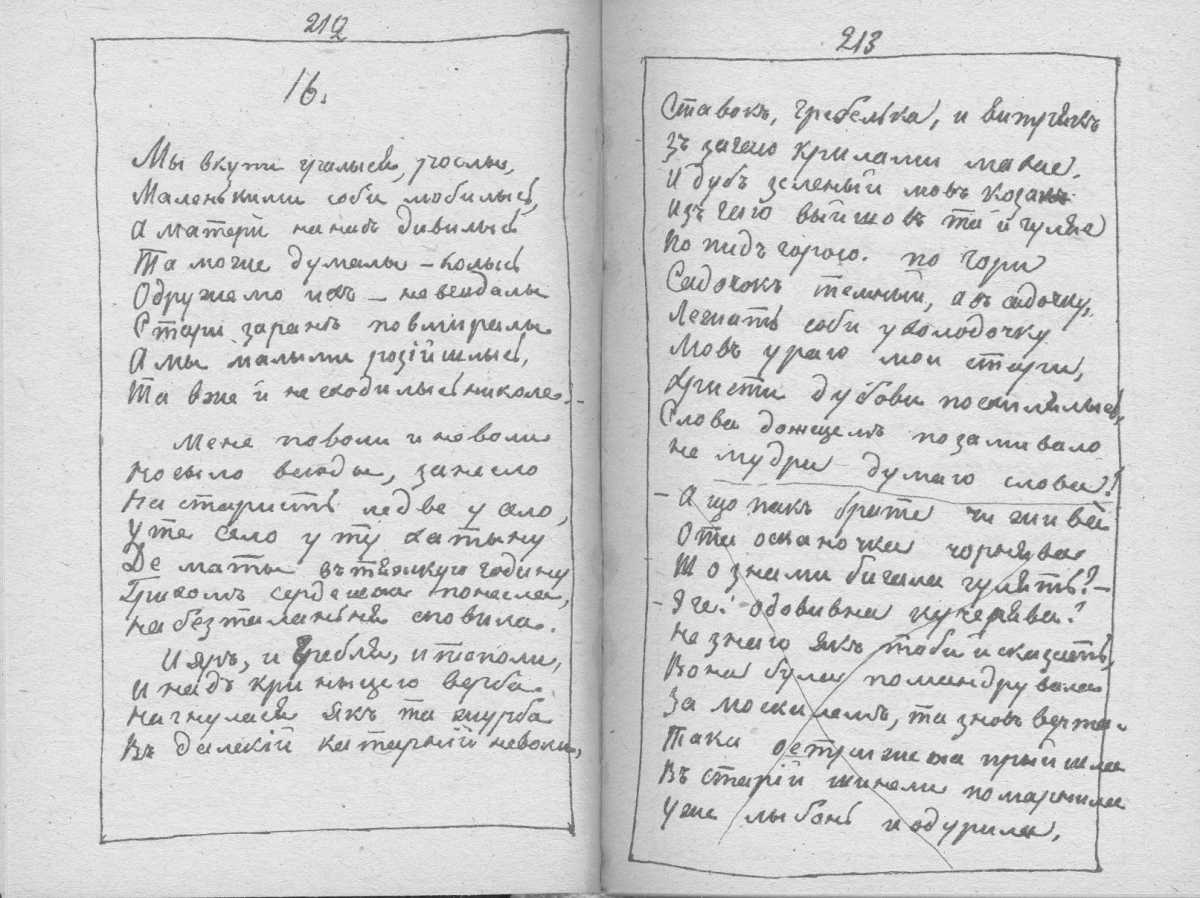 212
16.
Мы вкупи учылыся, росьлы,
Маленькими соби любилысь,
А матери на насъ дивилысь
Та може думалы — колысь
Одружемо ихъ — не вгадалы
Стари заранѣ повмиралы
А мы малыми розійшлысь,
Та вже й не сходилысь николе. —
Мене по воли и неволи
Носыло всюды, занесло
На старисть ледве у село,
У те село у ту хатыну
Де маты въ тяжкую годину
сердешна понесла,
на безталання сповила.
И яръ, и гребля, и тополи,
И надъ крыныцею верба
Нагнулася якъ та журба
Въ далекій каторжній неволи,
213
Ставокъ, гребелька, и витрякъ
Зъ за гаю крилами махае.
И дубъ зеленый мовъ козакъ
Изъ гаю выйшовъ та й гуляе
По пидъ горою. по гори
Садочокъ темный, а въ садочку,
Лежать соби у холодочку
Мовъ у раю мои стари,
Хрести дубови похилылысь,
Слова дощемъ позамивало
не мудри думаю слова!
— А що пакъ брате чи жива
Ота Оксаночка чорнява
Шо знами бигала гулять? —
— Яка! одовивна кучерява?
не знаю якъ тоби й сказать,
Вона була помандрувала
За москалемъ, та зновъ вчта.
Така острижена прыйшла
Въ старій шинели помарнила
Уже лыбонь и одурила,